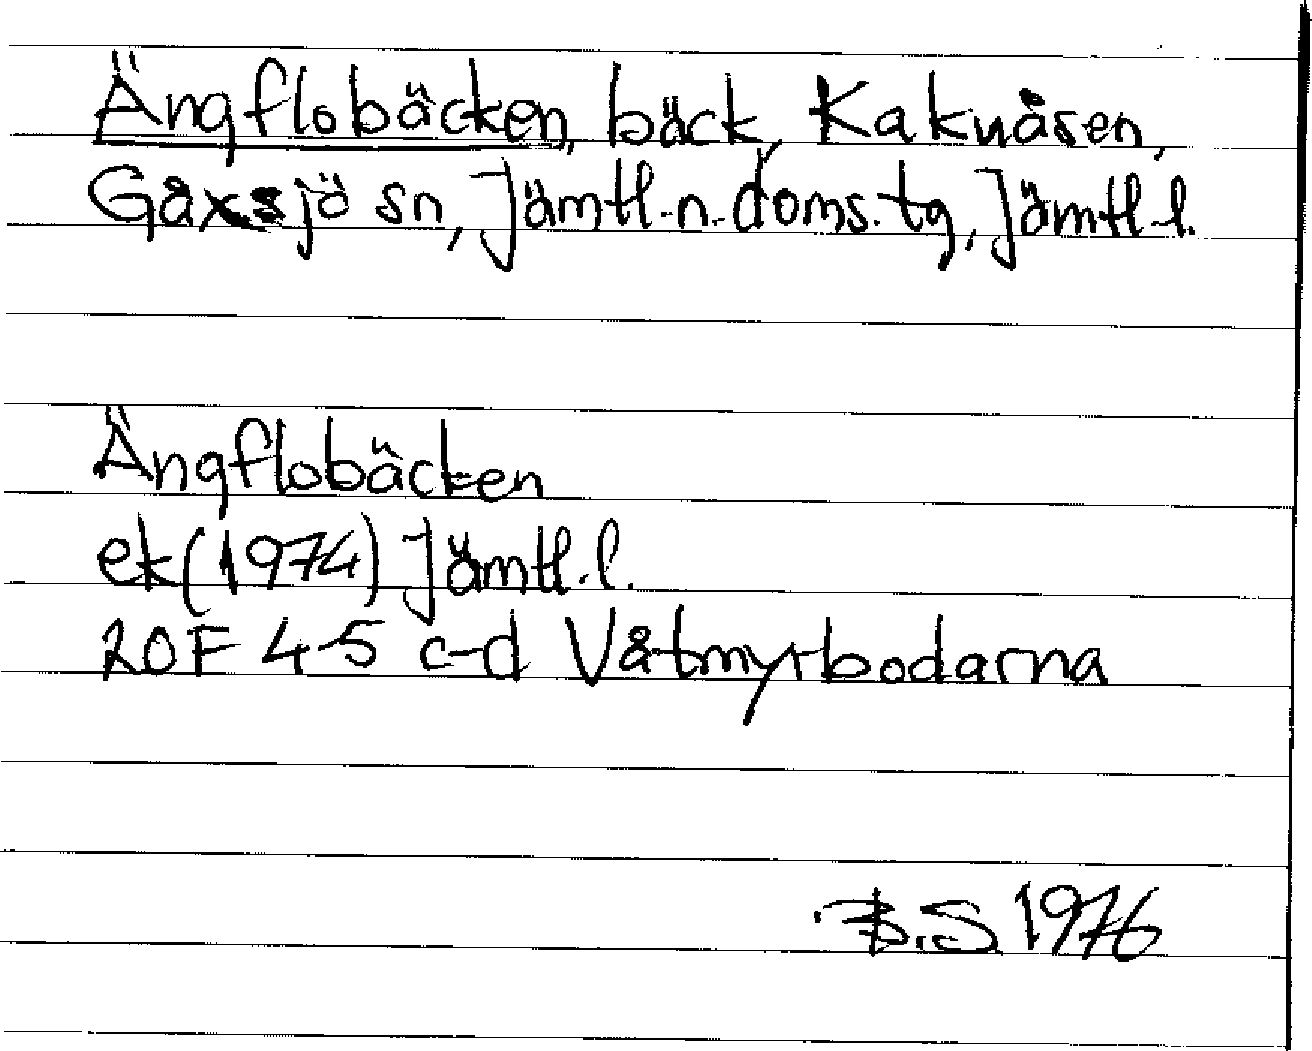 Ängflobäcken, bäck, Kakuåsen,
Gåxsjö sn, Jämtl.n.doms.tg, Jämtl.l.
Ängflobäcken
ek(1974) Jämtl.l.
20F 4-5 c-d Våtmyrbodarna
B.S. 1976